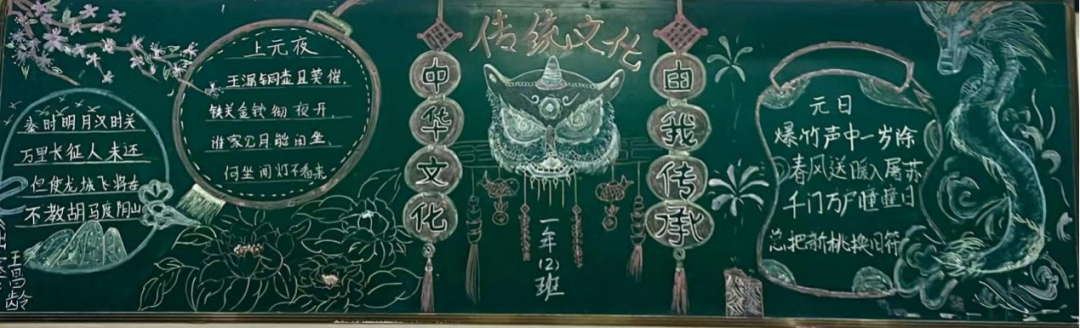 传统文化
中华文化
由我传承
一年(2)班
秦时明月汉时关
万里长征人未还
但使龙城飞将在
不教胡马度阴山
出塞
王昌龄
上元夜
玉漏铜壶且莫催，
铁关金锁彻夜开，
谁家见月能闲坐，
何处闻灯不看来
元日
爆竹声中一岁除
春风送暖入屠苏
千门万户曈曈日
总把新桃换旧符